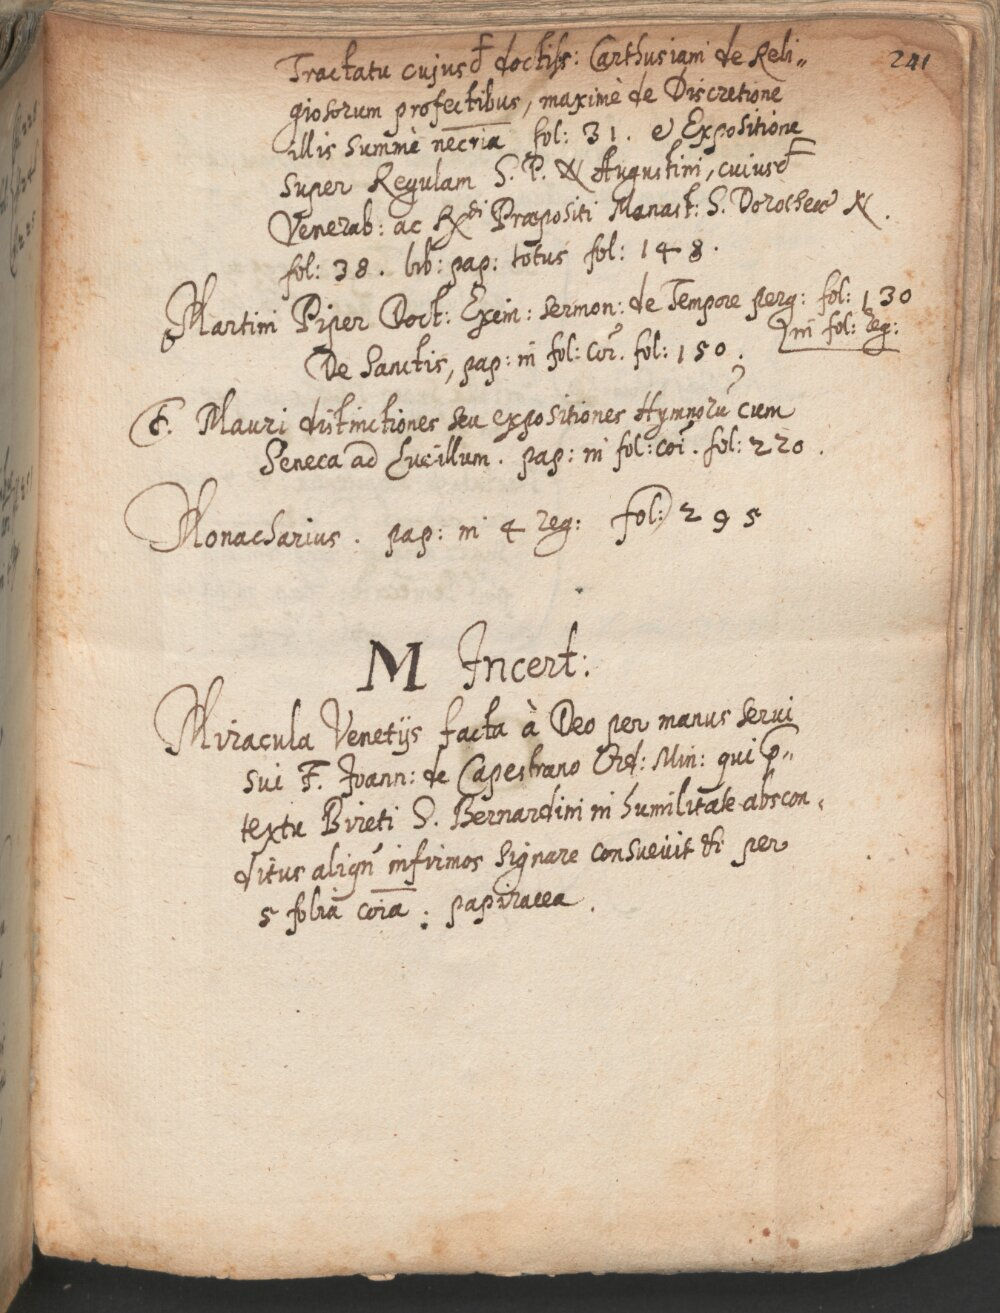 241
Tractatu cujusd doctiss: Carthusiani de Reli„
giosorum profectibus, maximè de Discretione
illis summè necria fol: 31. & Expositione
super Regulam S. P. N Augustini, cuiusd
Venerab: ac Rdi Præpositi Manast: S. Dorotheæ N.
fol: 38. lib: pap: totus fol: 148.
Martini Piper Doct: Exim: sermon: de Tempore perg: fol: 130
in fol: reg:
De Sanctis, pap: in fol: coi. fol: 150.
F. Mauri distinctiones seu expositiones Hymnorū cum
Seneca ad Lucillum. pap: in fol: coi. fol: 220.
Monacharius. pap: in 4 reg: fol: 295
M Incert:
Miracula Venetijs facta à Deo per manus servi
sui F. Joann: de Capestrano Ord: Min: qui p„
textu Bireti S. Bernardini in humilitate abscon„
ditus infirmos signare consuevit per
5 folia coia: papiracea.